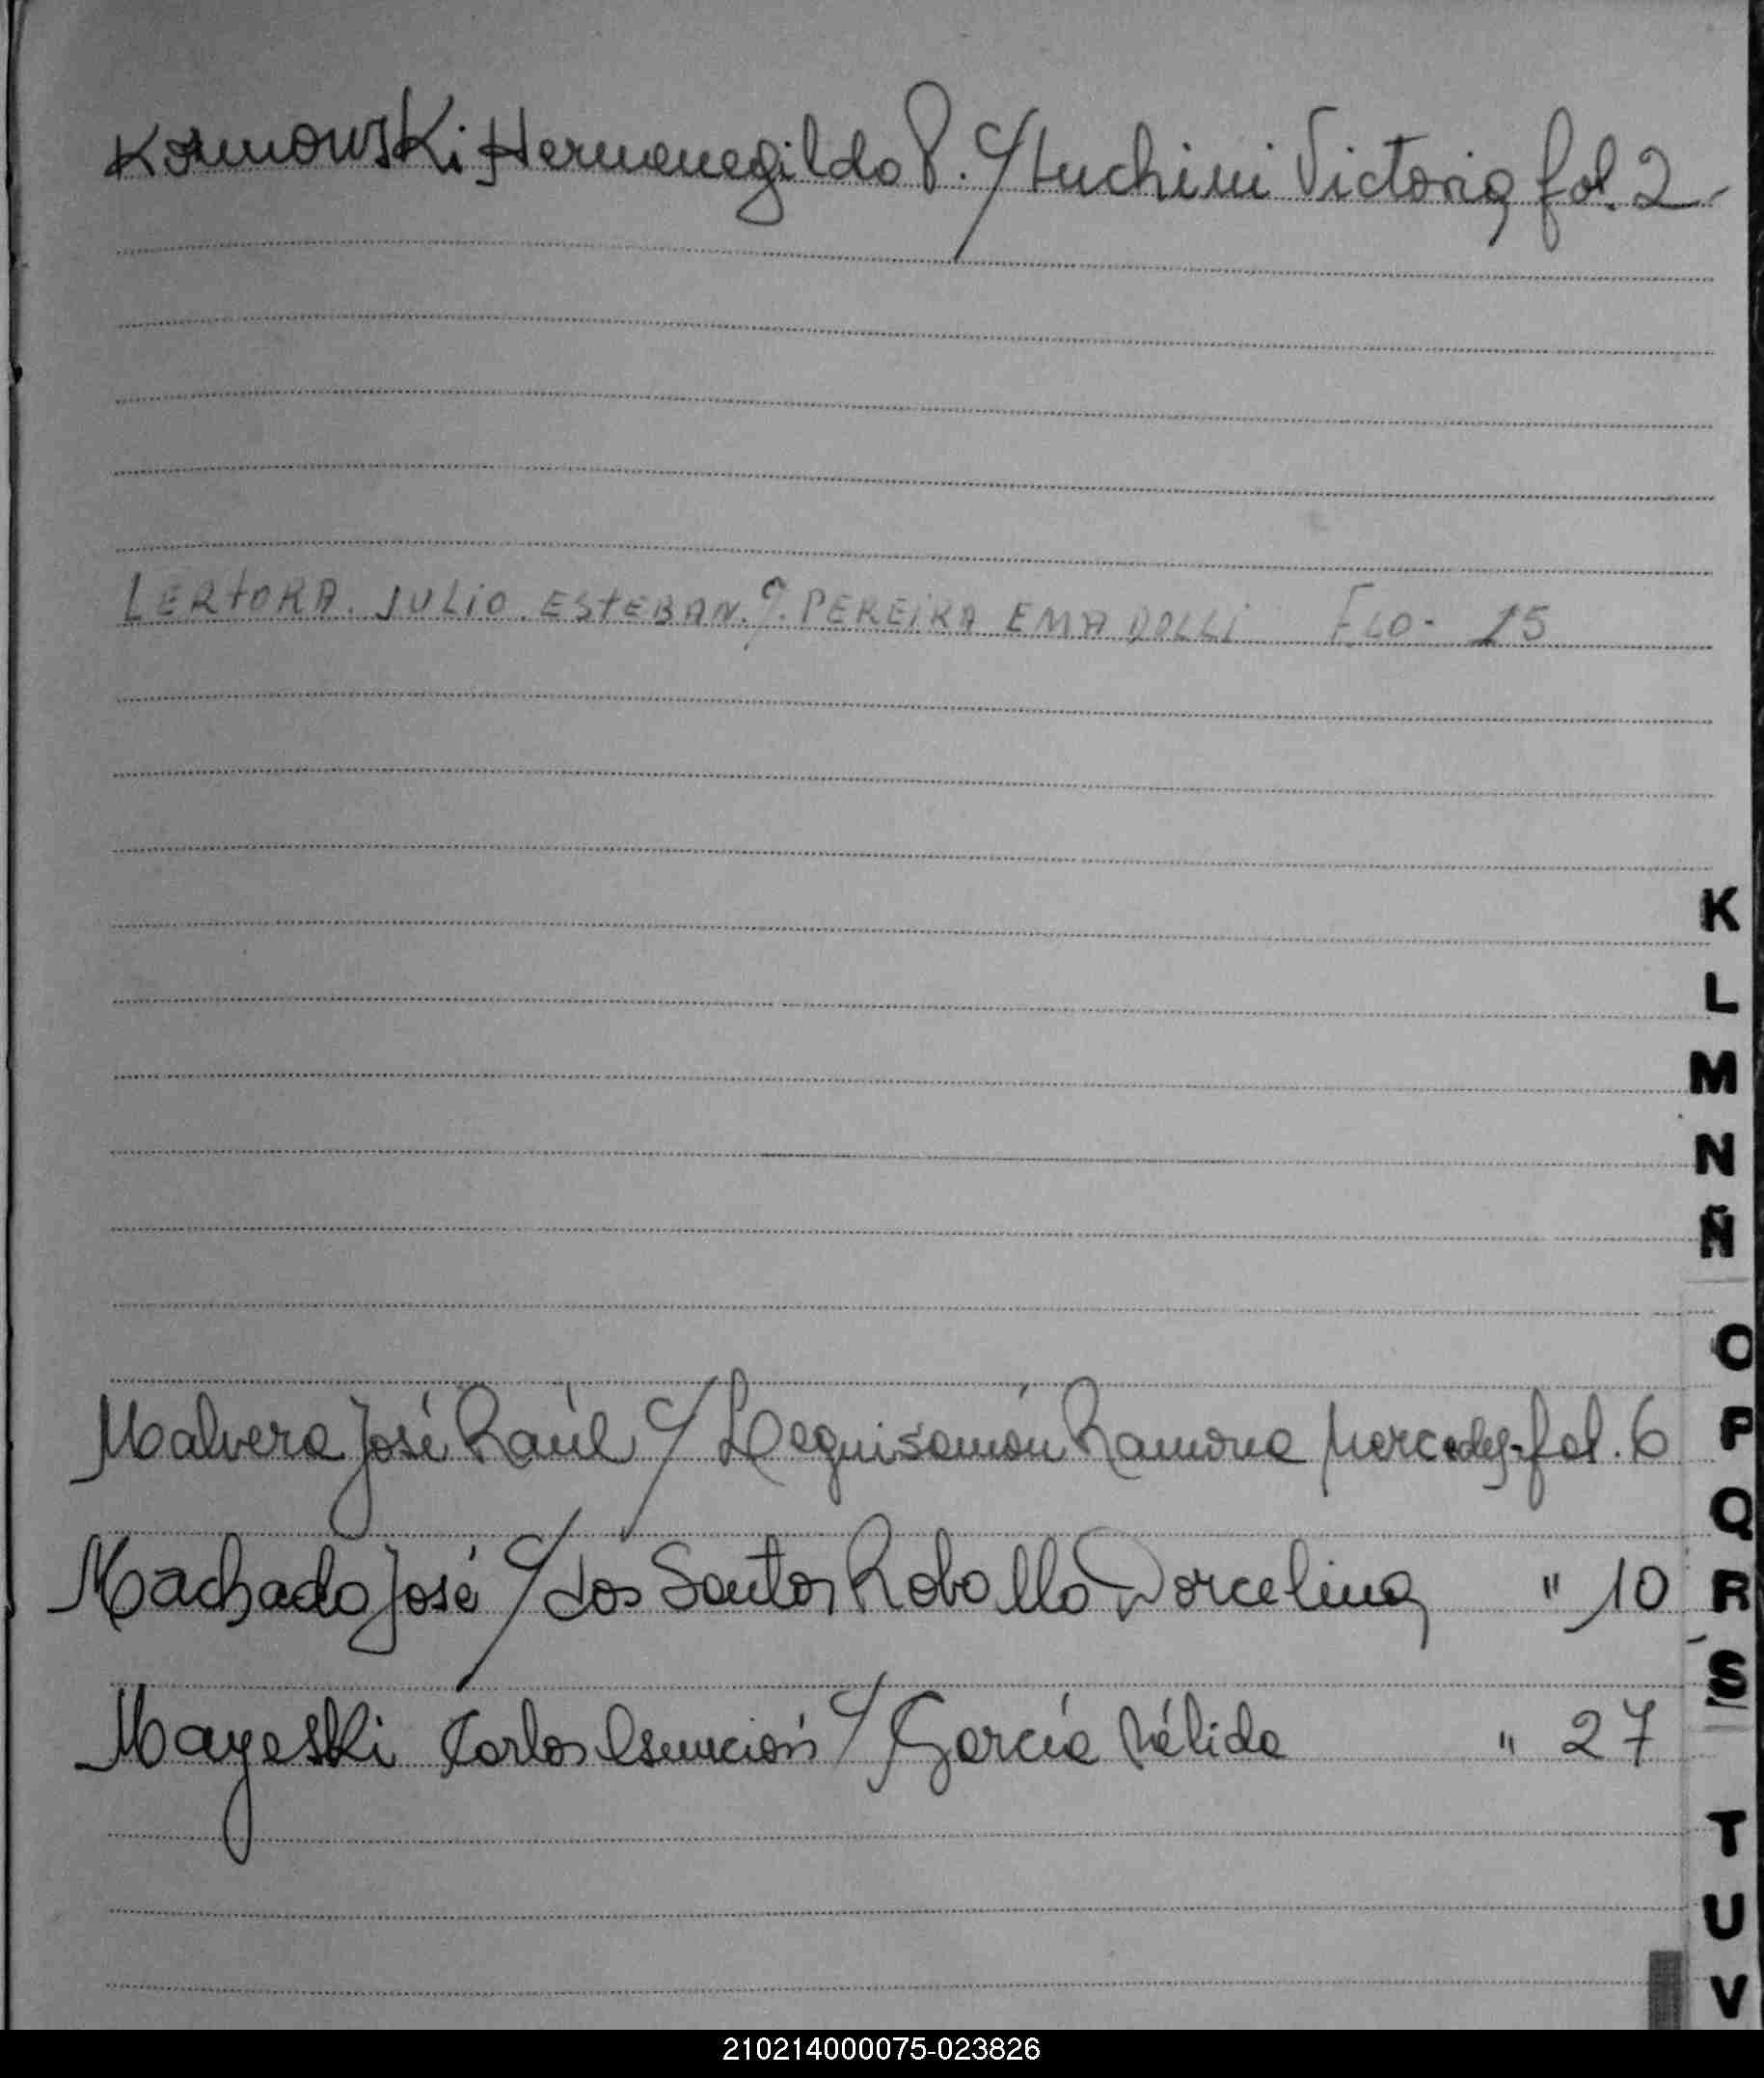 Hermenegildo P. c/ Luchini Victoria fol. 2
LERTORA. JULIO. ESTEBAN. c/. PEREIRA EMA DOLLI FLO- 15
K
L
M
N
Ñ
O
P
Malvera José Raúl c/ Leguisamón Ramona Mercedes - fol. 6
Q
Machado José c/ dos Santos Roballo Dorcelina " 10
R
S
Mayeski Carlos Asunción c/ García Nélida " 27
T
U
V
210214000075-023826